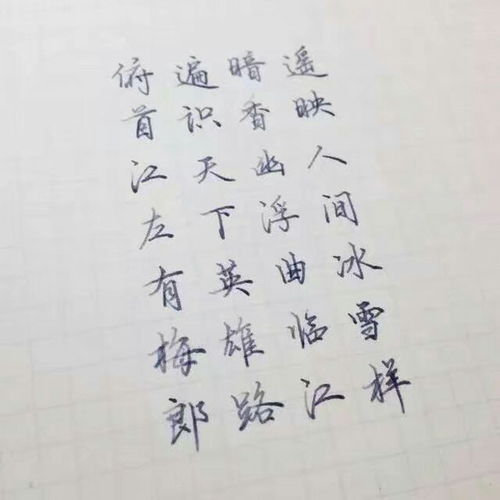 遥映人间冰雪样
暗香幽浮曲临江
遍识天下英雄路
俯首江左有梅郎